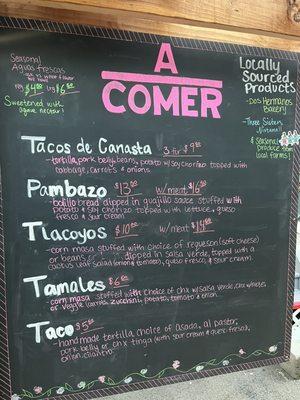 A
COMER
Seasonal
Aguas frescas
reg $4.00 Lrg $6.00
Sweetened with
agave nectar!
Locally
Sourced
Products
- Dos Hermanos
Bakery!
- Three Sisters
Nixtamal
& seasonal
produce from
local farms!
Tacos de Canasta 3 for $9.00
- tortilla, pork belly, beans, potato w/ soy chorizo topped with
cabbage, carrots & onions
Pambazo $13.00 w/meat $16.00
- bolillo bread dipped in guajillo sauce stuffed with
potato & soy chorizo topped with lettuce, queso
fresco & sour cream
Tlacoyos $10.00 w/meat $14.00
- corn masa stuffed with choice of requeson (soft cheese)
or beans dipped in salsa verde, topped with a
cactus leaf salad (onion & tomatoes), queso fresco, & sour cream
Tamales $6.00
- corn masa stuffed with choice of chx w/ salsa verde,
or veggie (carrots, zucchini, potato, tomato & onion
Taco $5.00
- handmade tortilla choice of asada, al pastor,
pork belly or chx tinga (with sour cream & queso fresco),
onion cilantro